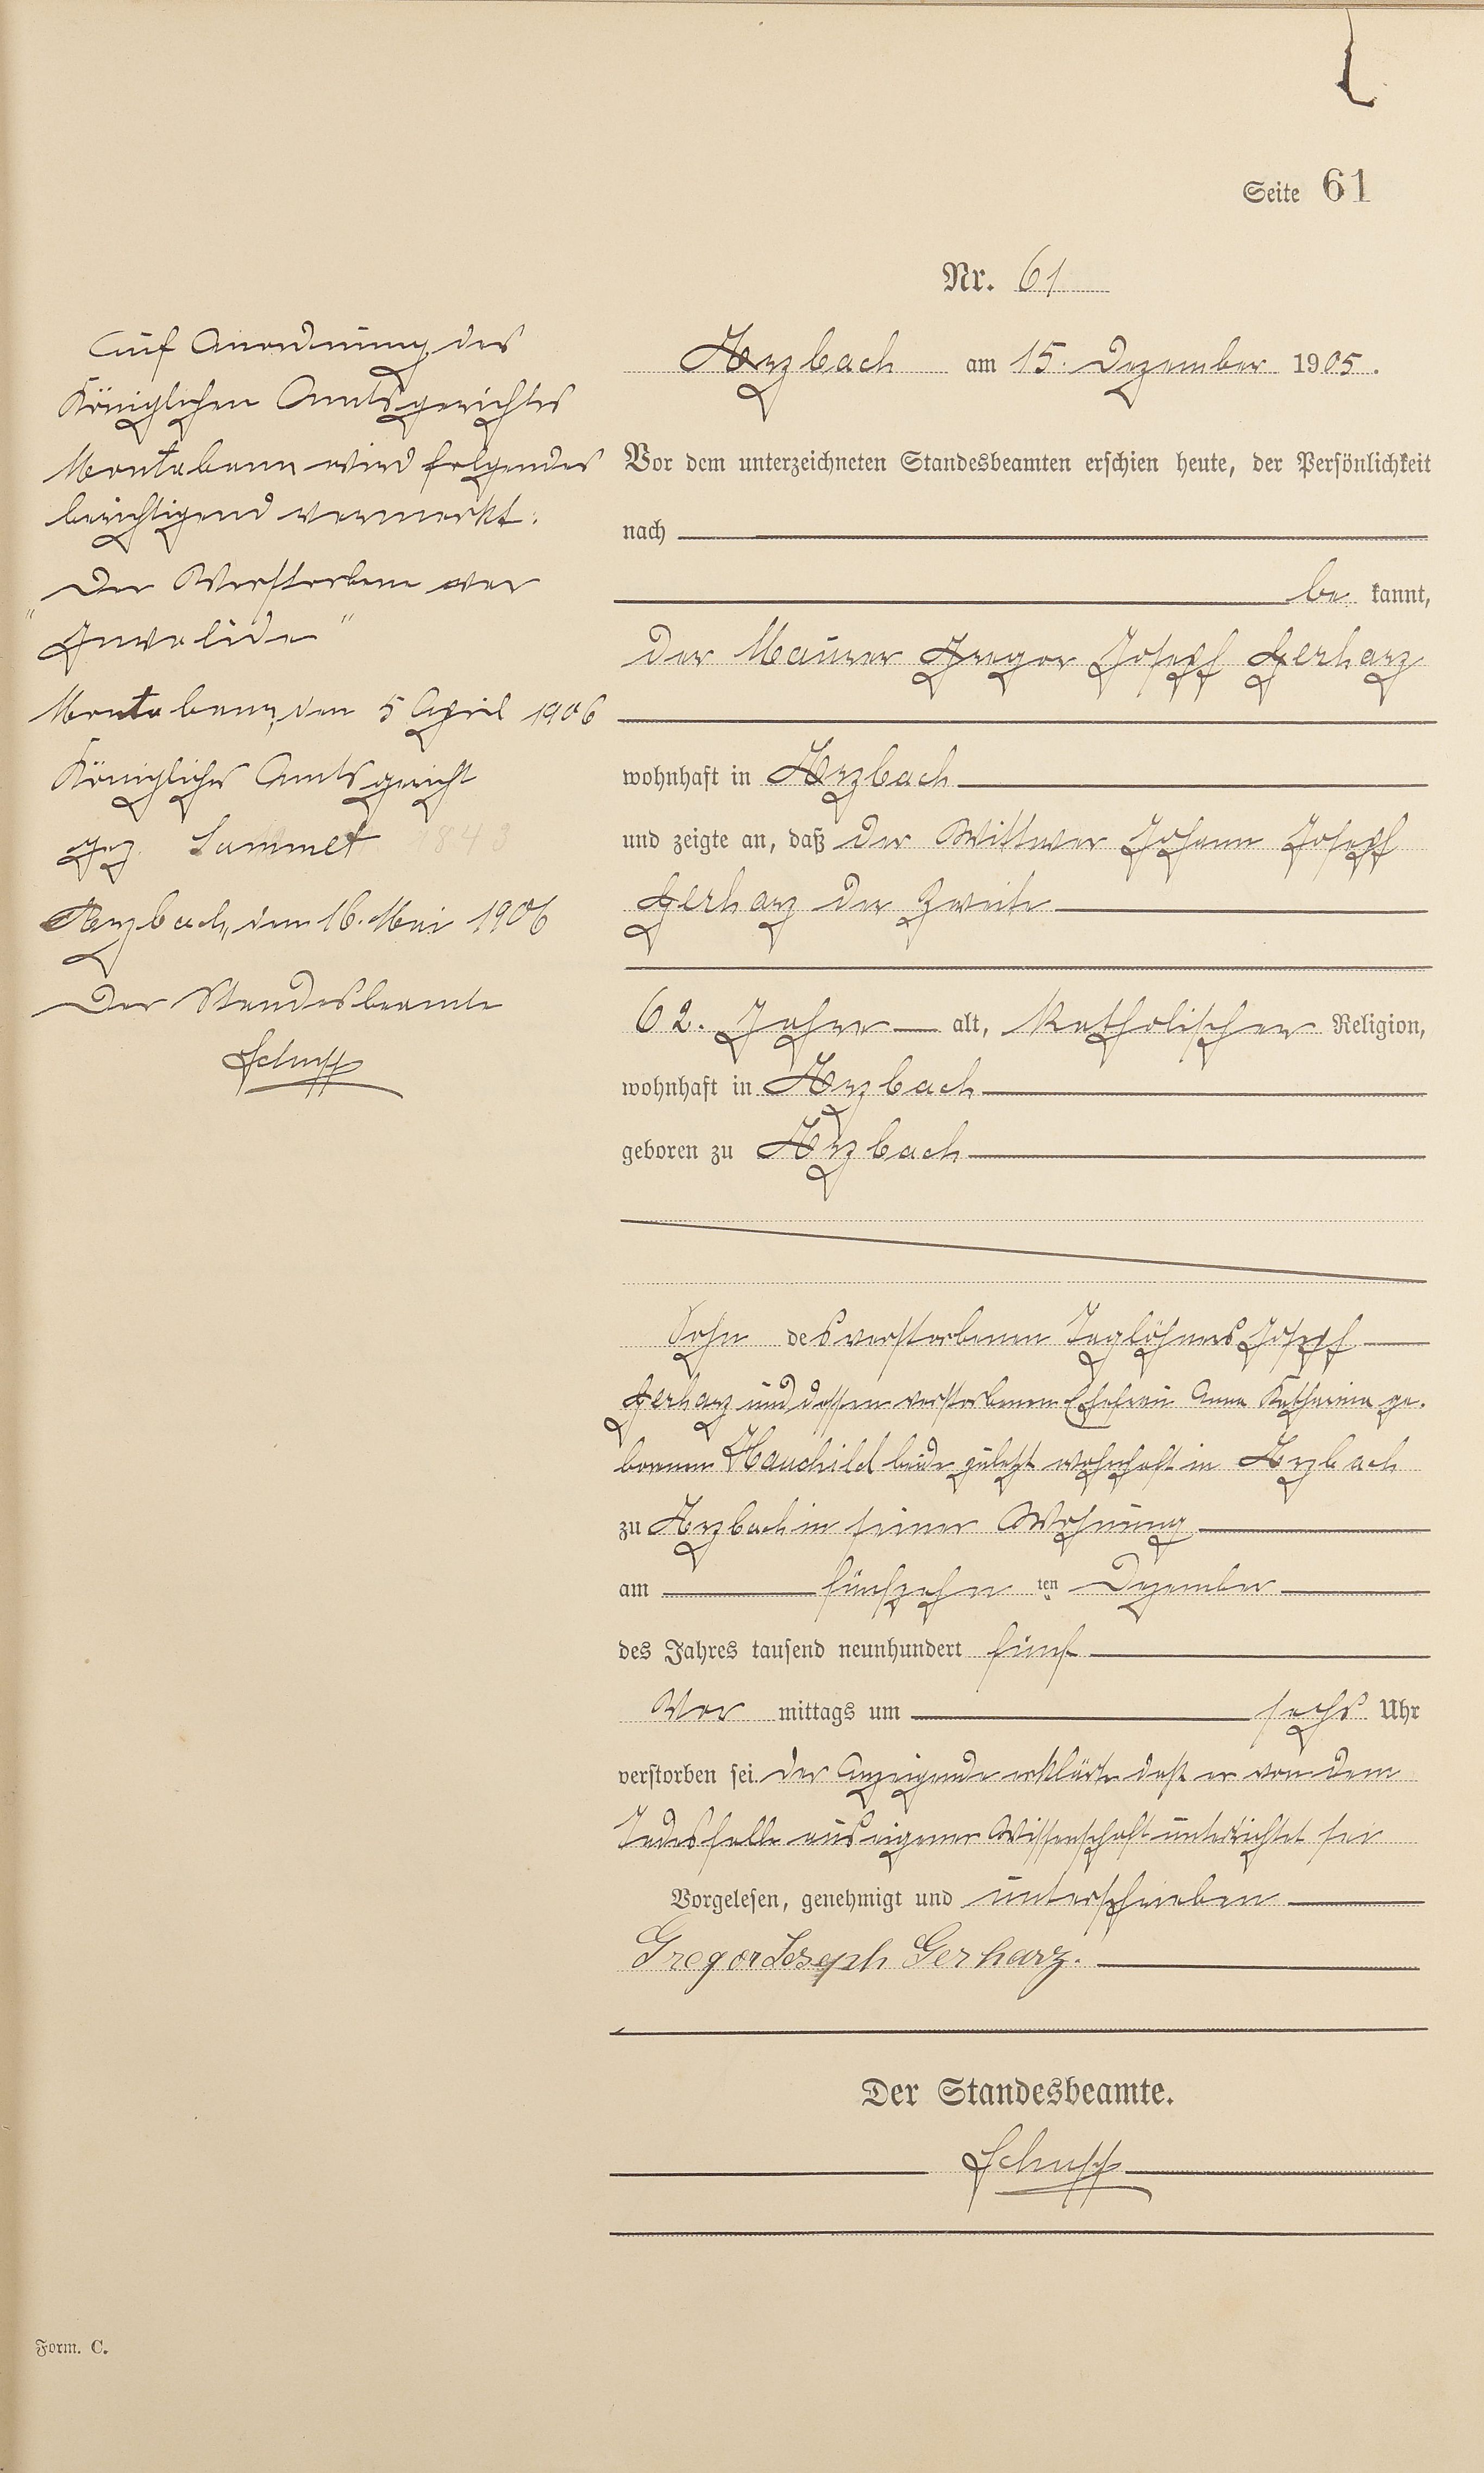 Seite 61
Nr. 61
Arzbach am 15. Dezember 1905.
Vor dem unterzeichneten Standesbeamten erschien heute, der Persönlichkeit
nach
be kannt,
der Maurer Gregor Josepf Gerharz
wohnhaft in Arzbach
und zeigte an, daß der Wittwer Johann Josepf
Gerharz der Zweite
62. Jahre alt, katholischer Religion,
wohnhaft in Arzbach
geboren zu Arzbach
Sohn des verstorbenen Taglöhners Josepf
Gerharz und dessen verstorbenen Ehefrau Anna Katharina ge.
borenen Hauchild beide zuletzt wohnhaft in Arzbach
zu Arzbach in seiner Wohnung
am fünfzehn ten Dezember
des Jahres tausend neunhundert fünf
Vor mittags um sechs Uhr
verstorben sei. Der Anzeigende erklärte daß er von dem
Todesfalle aus eigener Wissenschaft unterichtet sei
Vorgelesen, genehmigt und unterschrieben
Gregor Joseph Gerharz.
Der Standesbeamte.
Schupp
Auf Anordnung des
Königlichen Amtsgerichtes
Montabaur wird folgendes
berichtigend vermerkt:
Der Verstorbene war
"Invalide"
Montabaur, den 5 April 1906
Königliches Amtsgericht
gez. Sammet 1843
Arzbach, den 16. Mai 1906
Der Standesbeamte
Schupp
Form. C.